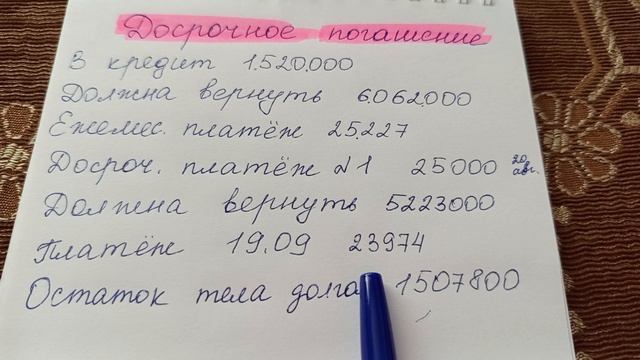 Досрочное погашение
В кредит 1.520.000
Должна вернуть 6.062.000
Ежемес. платёж 25.227
Досроч. платёж №1 25000 20 авг.
Должна вернуть 5223000
Платёж 19.09 23974
Остаток тела долга 1507800